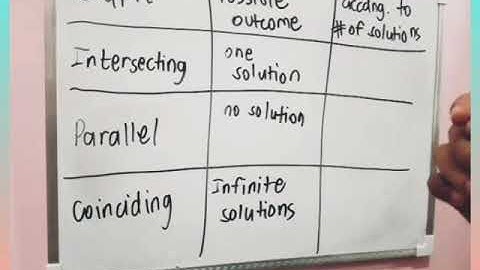 outcome
accdng. to
# of solutions
Intersecting
one
solution
Parallel
no solution
Coinciding
Infinite
solutions